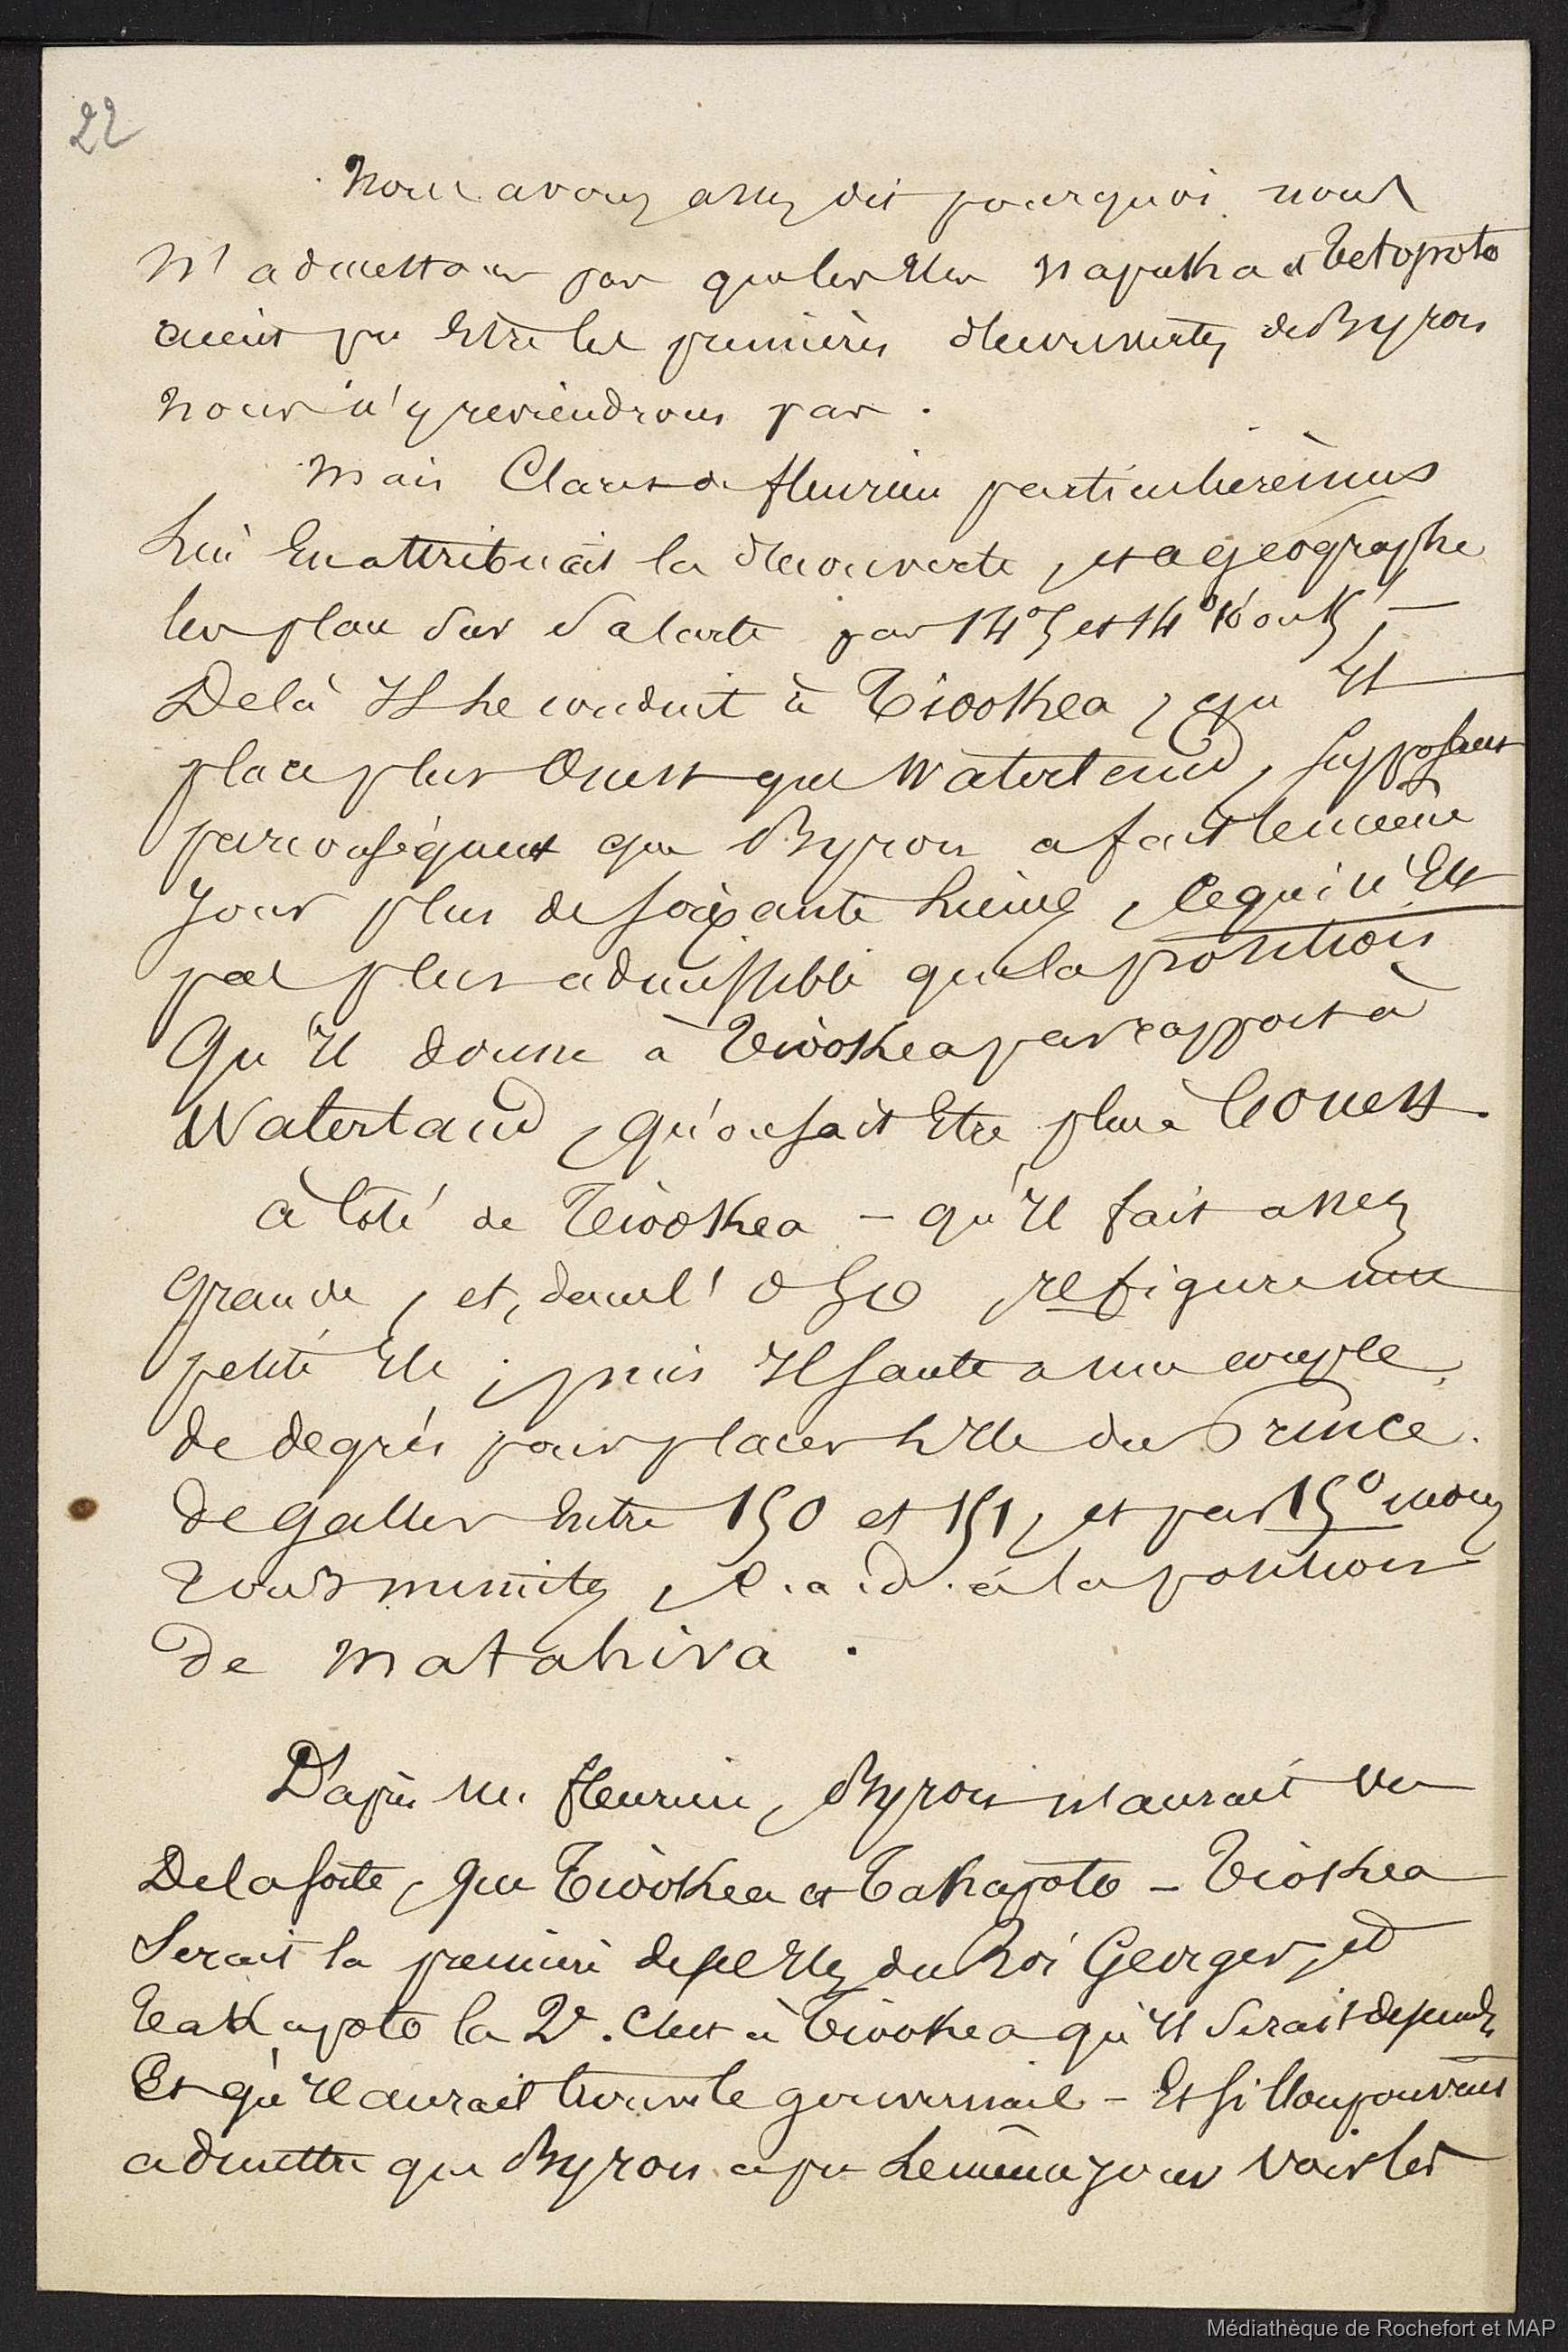 22
Nous avons assez dit pourquoi nous
n'admettons pas que les Iles Napuka et Tetopoto
aient pu Etre les premières découvertes de Byron
nous n'y reviendrons pas .
Mais Claret de fleurieu particulièrement
lui En attribuait la découverte , et a géographe
les place sur sa carte par 14° et 14°
De là Il le conduit à Tiookea , qu'Il
place plus Ouest que Waterland , supposant
par conséquent que Byron a fait le même
Jour plus de soixante lieues , ce qui n'Est
pas plus admissible que la position
Qu'Il donne à Tiookea par rapport à
Waterland , qu'on sait Etre plus à l'ouest .
à côté de Tiookea – qu'Il fait assez
grande , et, dans l'OSO , se figure une
petite Ile ; puis Il saute a une couple
de degrés pour placer l'Ile du Prince
de galles Entre 150 et 151 , et par 15° moins
minutes , c . a . d . à la position
De Matahiva .
D'après M. fleurieu , Byron n'aurait vu
De la sorte , que Tiookea et Takapoto – Tiookea
Serait la première des Iles du Roi Georges , et
Teakapoto la 2e . C'est à Tiookea qu'Il serait descendu
Et qu'Il aurait trouvé le gouvernail – Et si l'on pouvait
admettre que Byron a pu le même jour voir les
Médiathèque de Rochefort et MAP